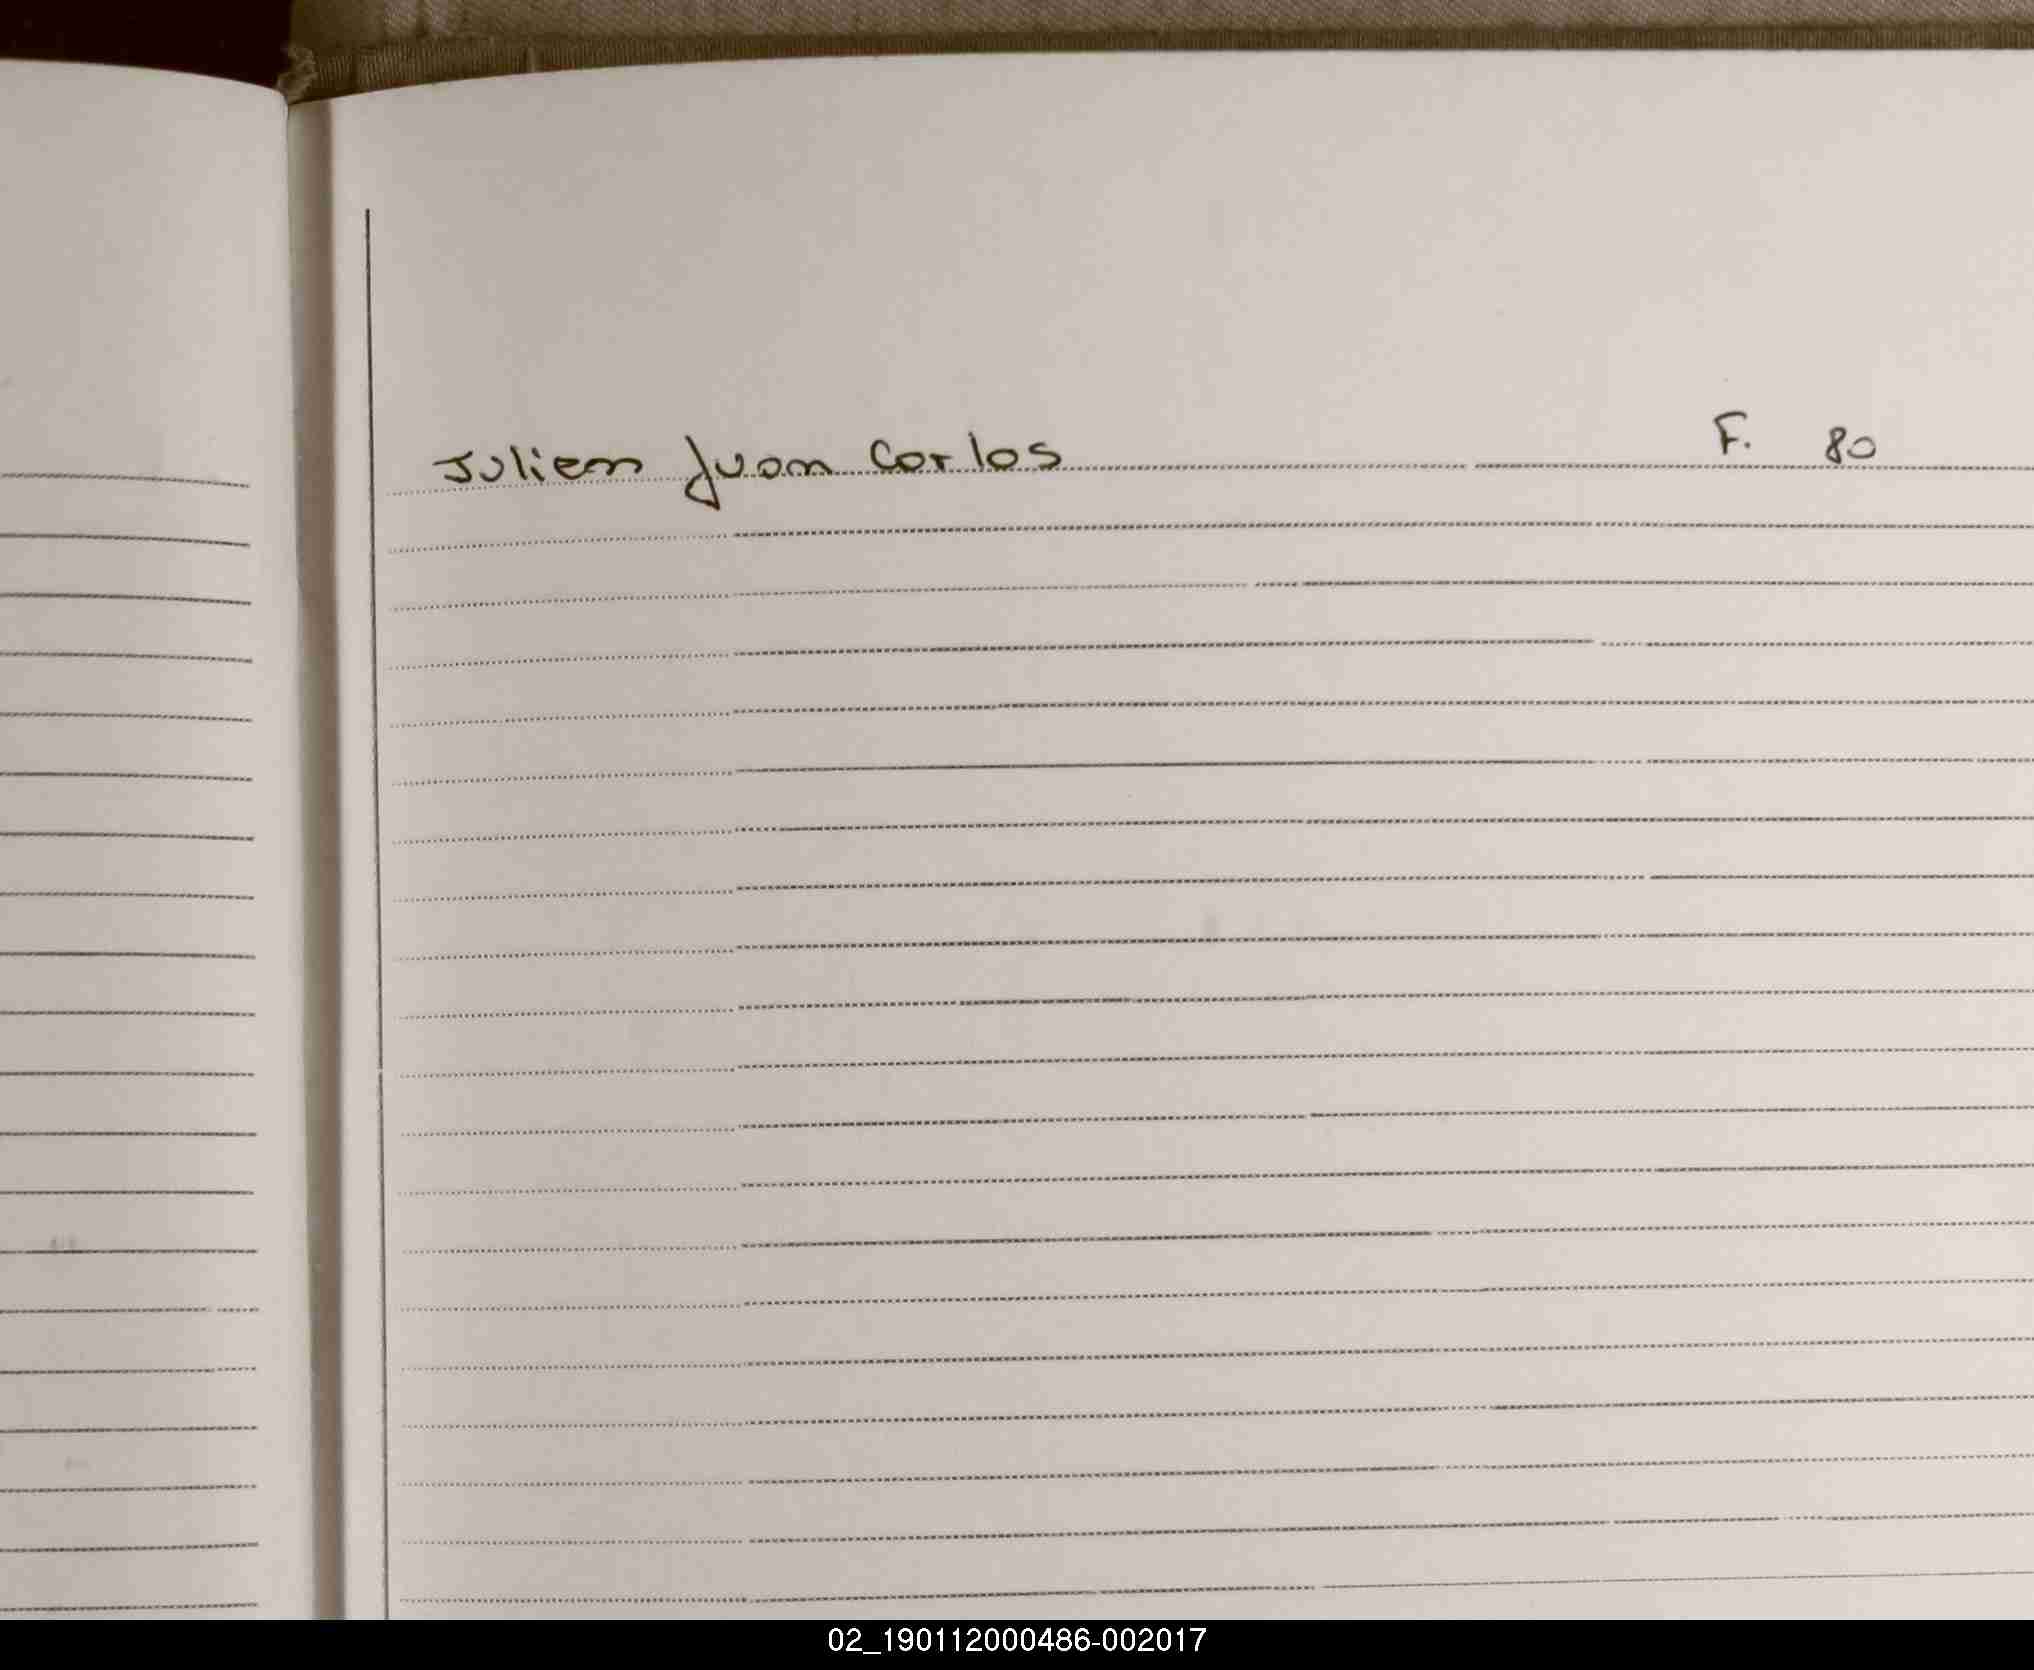 Julien Juan Carlos F. 80
02_190112000486-002017